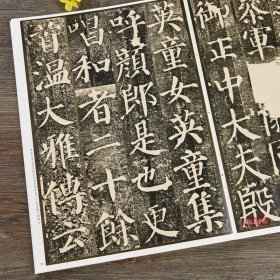 參軍
御正中大夫殷
英童女英童集
呼顏郎是也更
唱和者二十餘
首溫大雅傳云